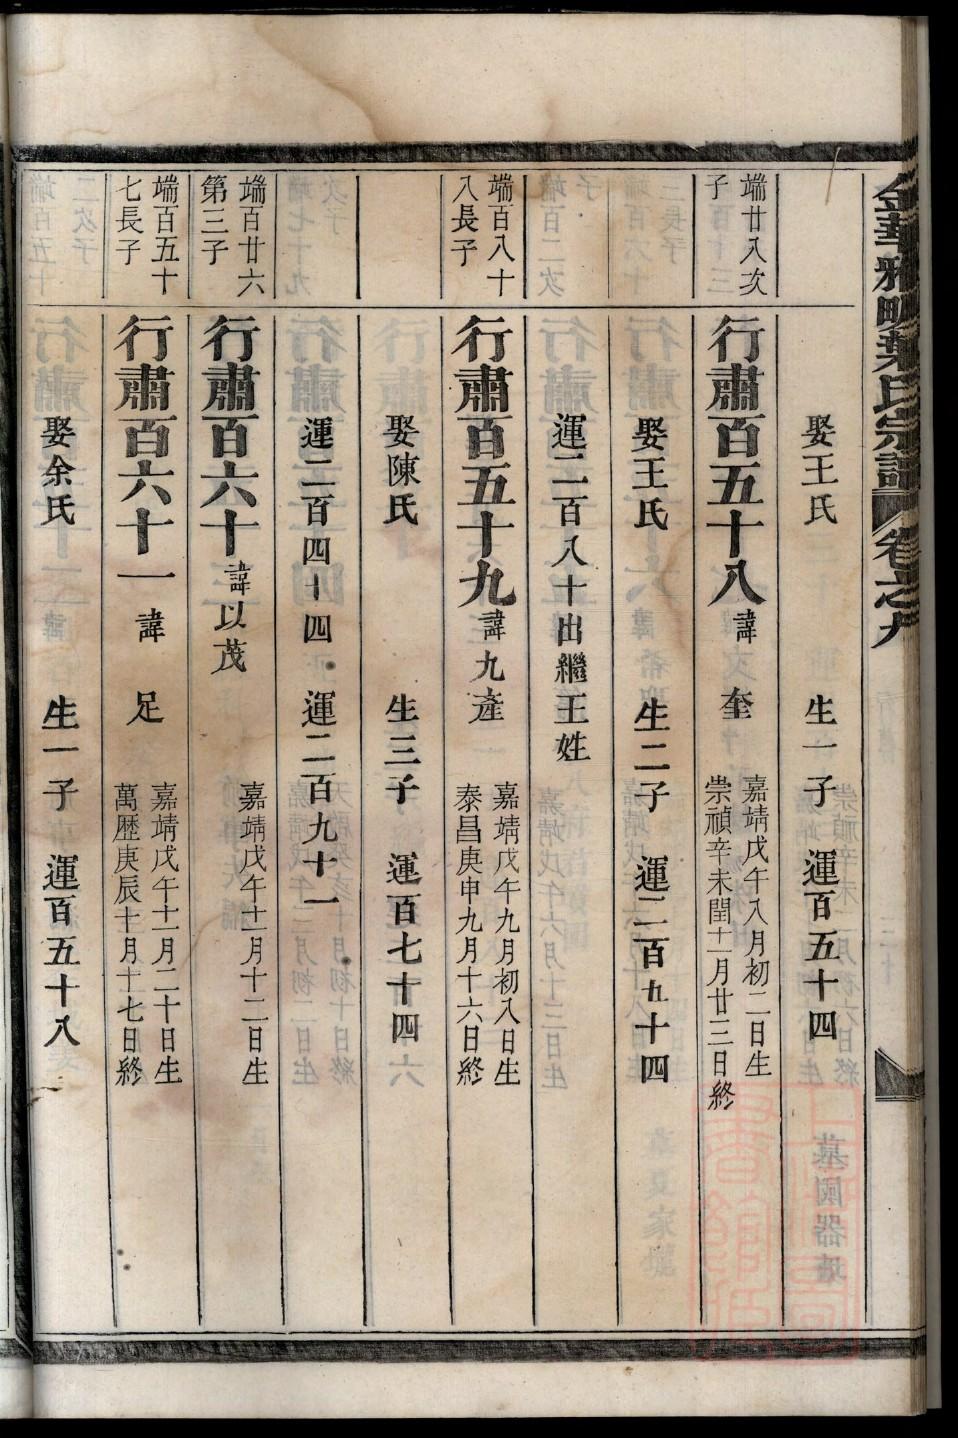 金華雅畈葉氏宗譜 卷之九
娶王氏 生一子 運百五十四
端廿八次子
行肅百五十八 諱奎 嘉靖戊午八月初二日生 崇禎辛未閏十一月廿三日終
娶王氏 生二子 運二百九十四
運二百八十出繼王姓
端百八十八長子
行肅百五十九 諱九產 嘉靖戊午九月初八日生 泰昌庚申九月十六日終
娶陳氏 生三子 運百七十四
運二百四十四 運二百九十一
端百廿六第三子
行肅百六十 諱以茂 嘉靖戊午十一月十二日生
端百五十七長子
行肅百六十一 諱足 嘉靖戊午十一月二十日生 萬歷庚辰十一月十七日終
娶余氏 生一子 運百五十八